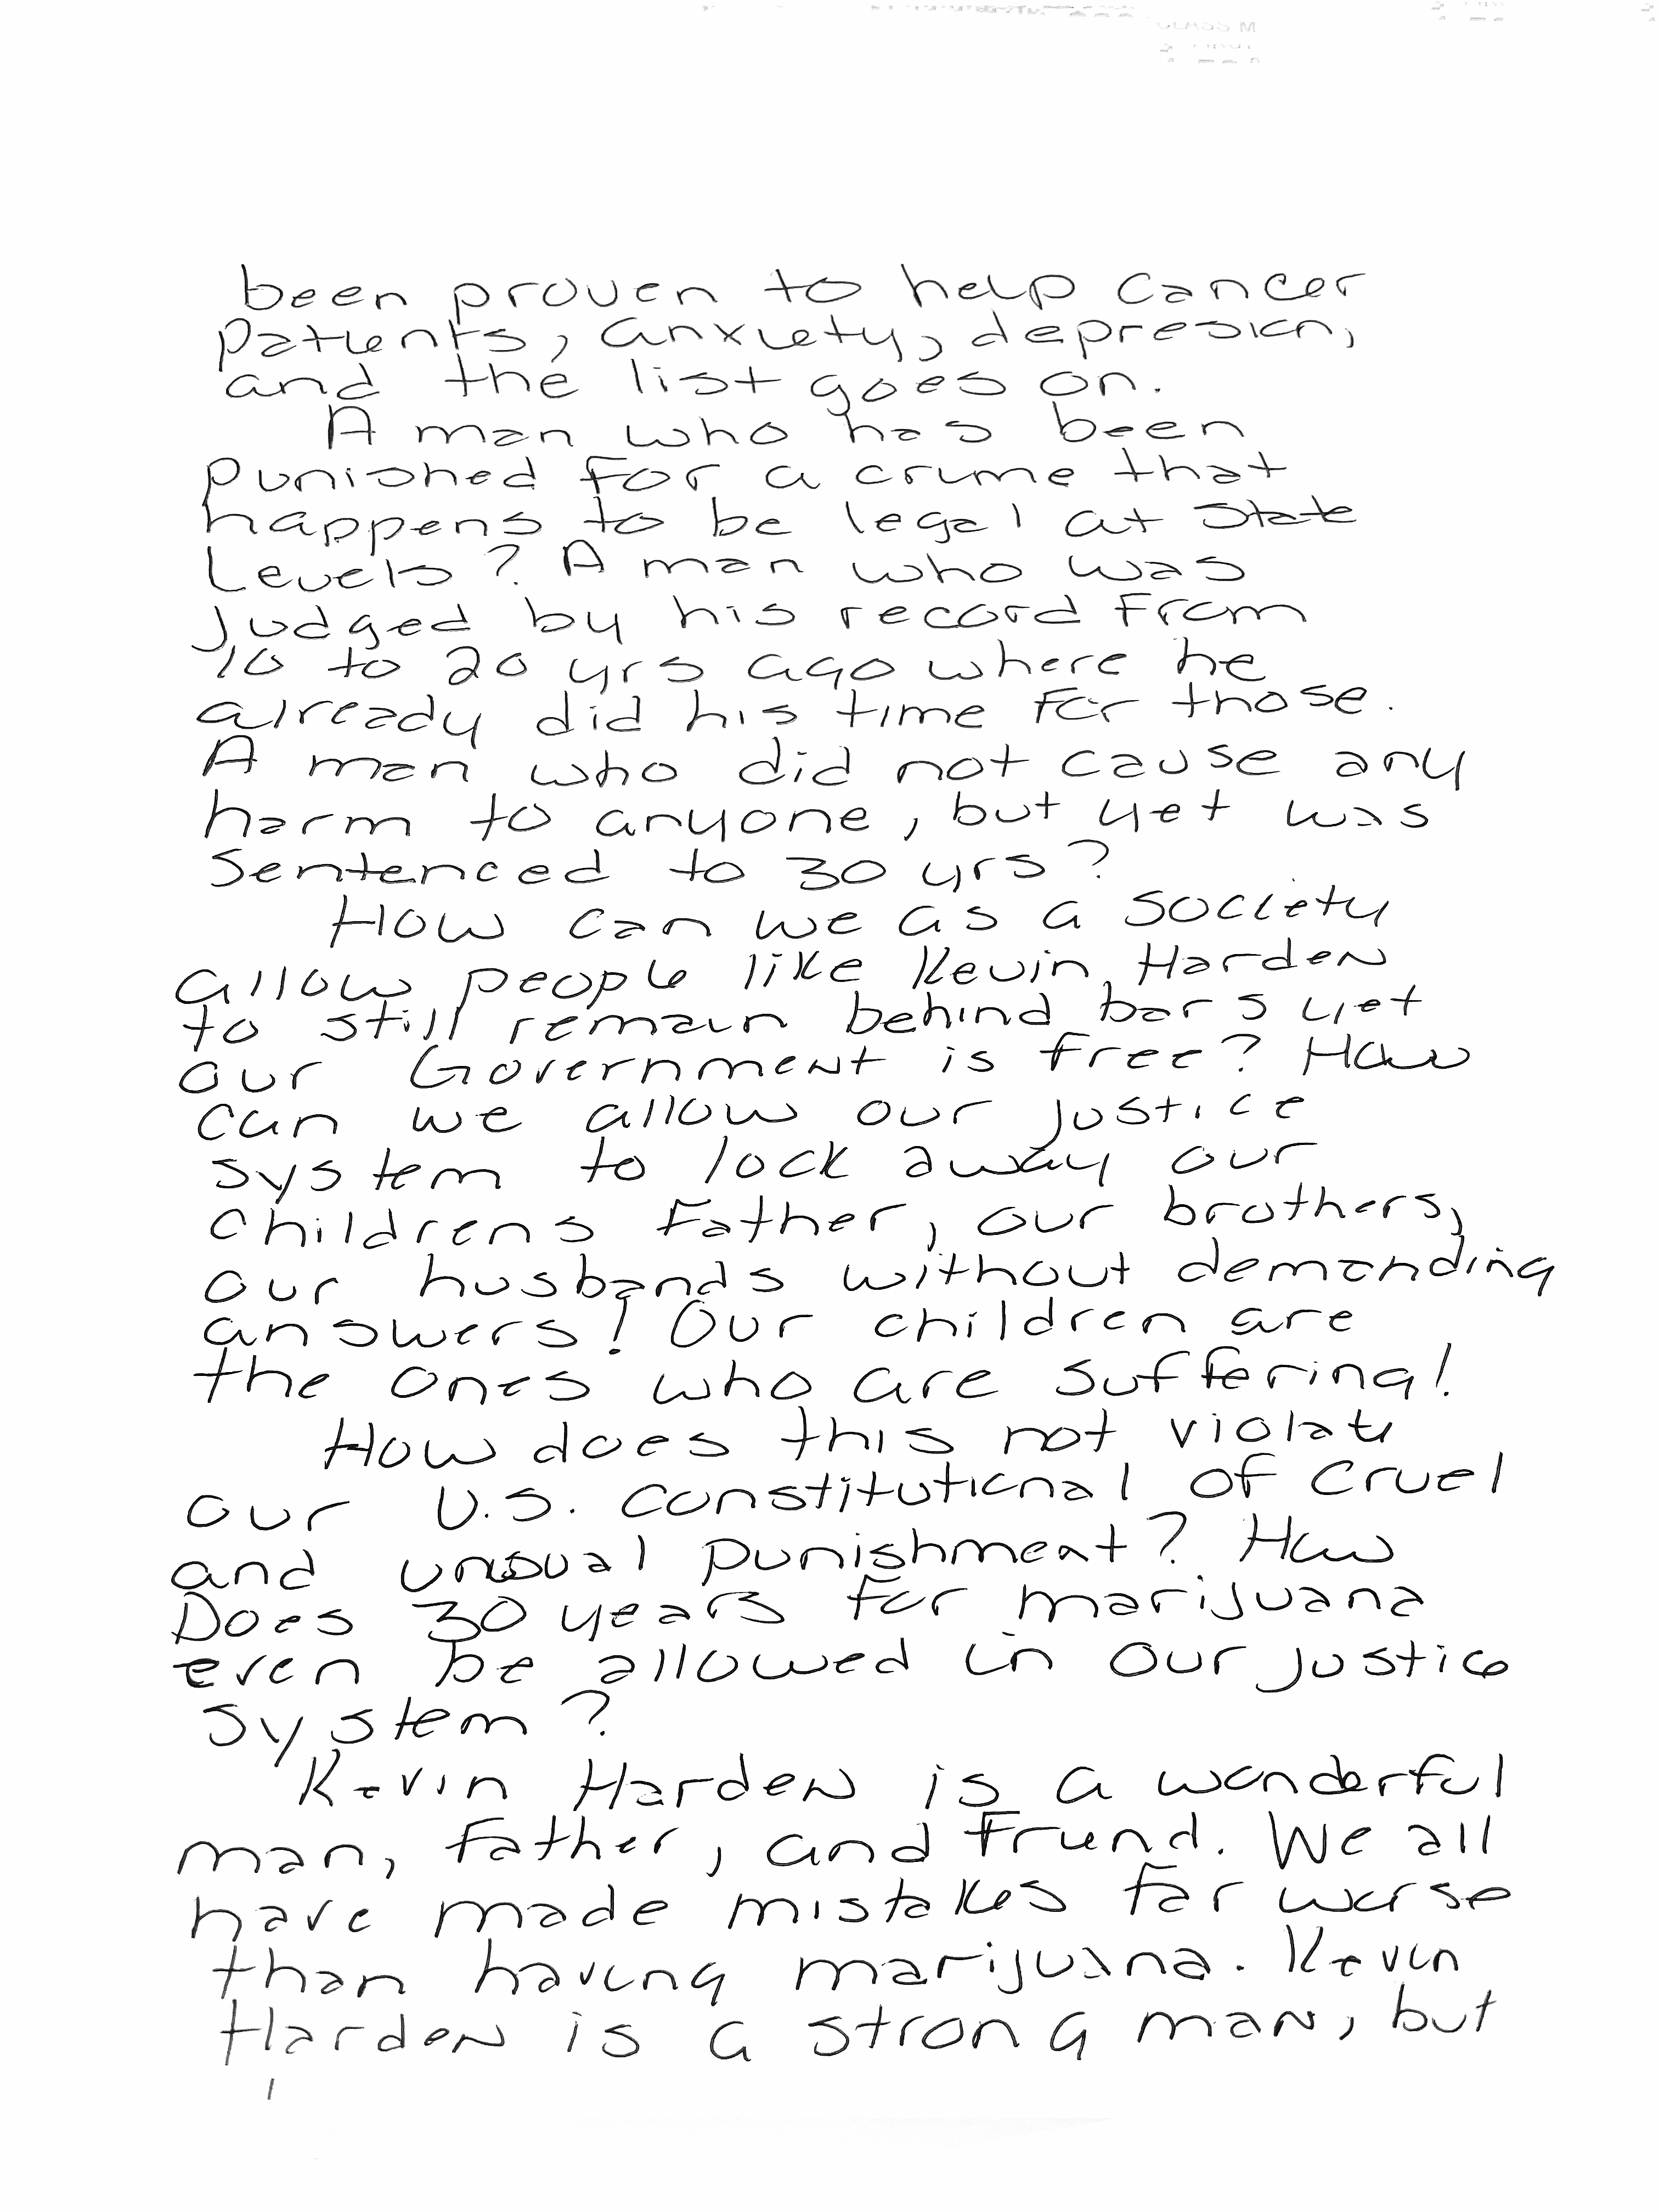 been proven to help cancer
patients, anxiety, depresion,
and the list goes on.
A man who has been
punished for a crime that
happens to be legal at State
Levels? A man who was
Judged by his record from
10 to 20 yrs ago where he
already did his time for those.
A man who did not cause any
harm to anyone, but yet was
Sentenced to 30 yrs?
How can we as a society
allow people like Kevin Harden
to still remain behind bars yet
our Government is free? How
can we allow our justice
system to lock away our
childrens Father, our brothers,
our husbands without demanding
answers! Our children are
the ones who are suffering!
How does this not violate
our U.S. constitutional of cruel
and unusual punishment? How
Does 30 years for marijuana
even be allowed in our justice
system?
Kevin Harden is a wonderful
man, father, and friend. We all
have made mistakes far worse
than having marijuana. Kevin
Harden is a strong man, but